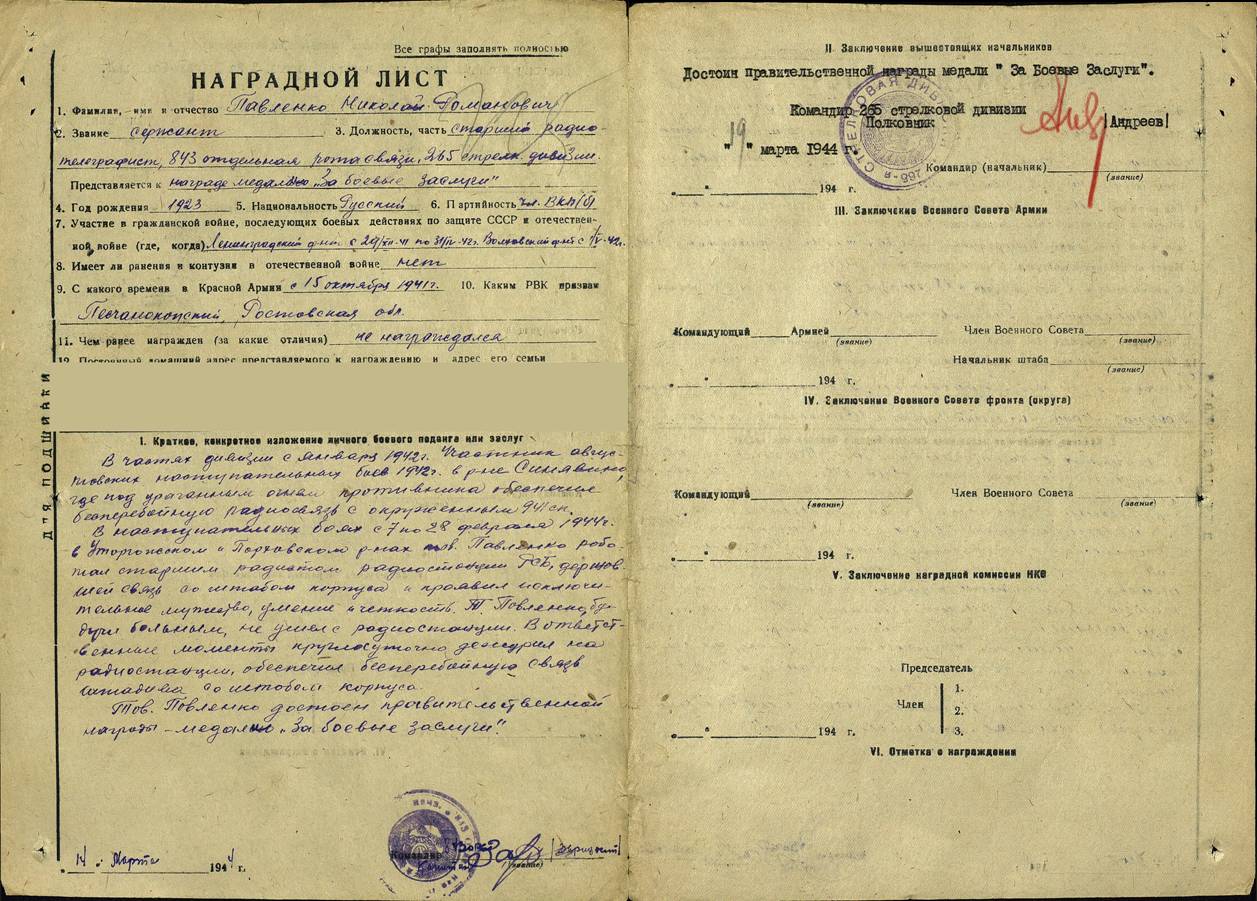 Все графы заполнять полностью
НАГРАДНОЙ ЛИСТ
1. Фамилия, имя и отчество Павленко Николай Романович
2. Звание сержант 3. Должность, часть старший радио-
телеграфист, 843 отдельная рота связи, 265 стрелк. дивизии.
Представляется к награде медалью „За боевые заслуги"
4. Год рождения 1923 5. Национальность Русский 6. Партийность чл. ВКП(б)
7. Участие в гражданской войне, последующих боевых действиях по защите СССР и отечествен-
ной войне (где, когда) Ленинградский фнт с 29/XII-41 по 31/IV-42г. Волховский фнт с 1/V-42г.
8. Имеет ли ранения и контузии в отечественной войне нет
9. С какого времени в Красной Армии с 15 октября 1941г. 10. Каким РВК призван
Песчанокопский, Ростовская обл.
11. Чем ранее награжден (за какие отличия) не награждался
12. Постоянный домашний адрес представляемого к награждению и адрес его семьи
ДЛЯ ПОДШИВКИ
I. Краткое, конкретное изложение личного боевого подвига или заслуг
В частях дивизии с января 1942г. Участник авгус-
товских наступательных боев 1942г. в р-не Синявино,
где под ураганным огнем противника обеспечил
бесперебойную радиосвязь с окруженным 941 сп.
В наступательных боях с 7 по 28 февраля 1944г.
в Уторгожском и Порховском р-нах тов. Павленко рабо-
тал старшим радистом радиостанции РСБ, державшей связь со штабом корпуса и проявил исключи-
тельное мужество, умение и четкость. Т. Павленко, бу-
дучи больным, не ушел с радиостанции. В ответст-
венные моменты круглосуточно дежурил на
радиостанции, обеспечил бесперебойную связь
штадива со штабом корпуса.
Тов. Павленко достоин правительственной
награды - медалью „За боевые заслуги".
Командир
(звание)
14 Марта 1944 г.
II Заключение вышестоящих начальников
Достоин правительственной награды медали " За Боевые Заслуги".
Командир 265 стрелковой дивизии
Полковник /Андреев/
"19" марта 1944 г.
СТРЕЛКОВАЯ ДИВ
Командир (начальник)
(звание)
" " 194 г.
III. Заключение Военного Совета Армии
Командующий Армией Член Военного Совета
(звание) (звание)
Начальник штаба
(звание)
" " 194 г.
IV. Заключение Военного Совета фронта (округа)
Командующий Член Военного Совета
(звание) (звание)
" " 194 г.
V. Заключение наградной комиссии НКО
Председатель
Член 1.
2.
3.
" " 194 г.
VI. Отметка о награждении